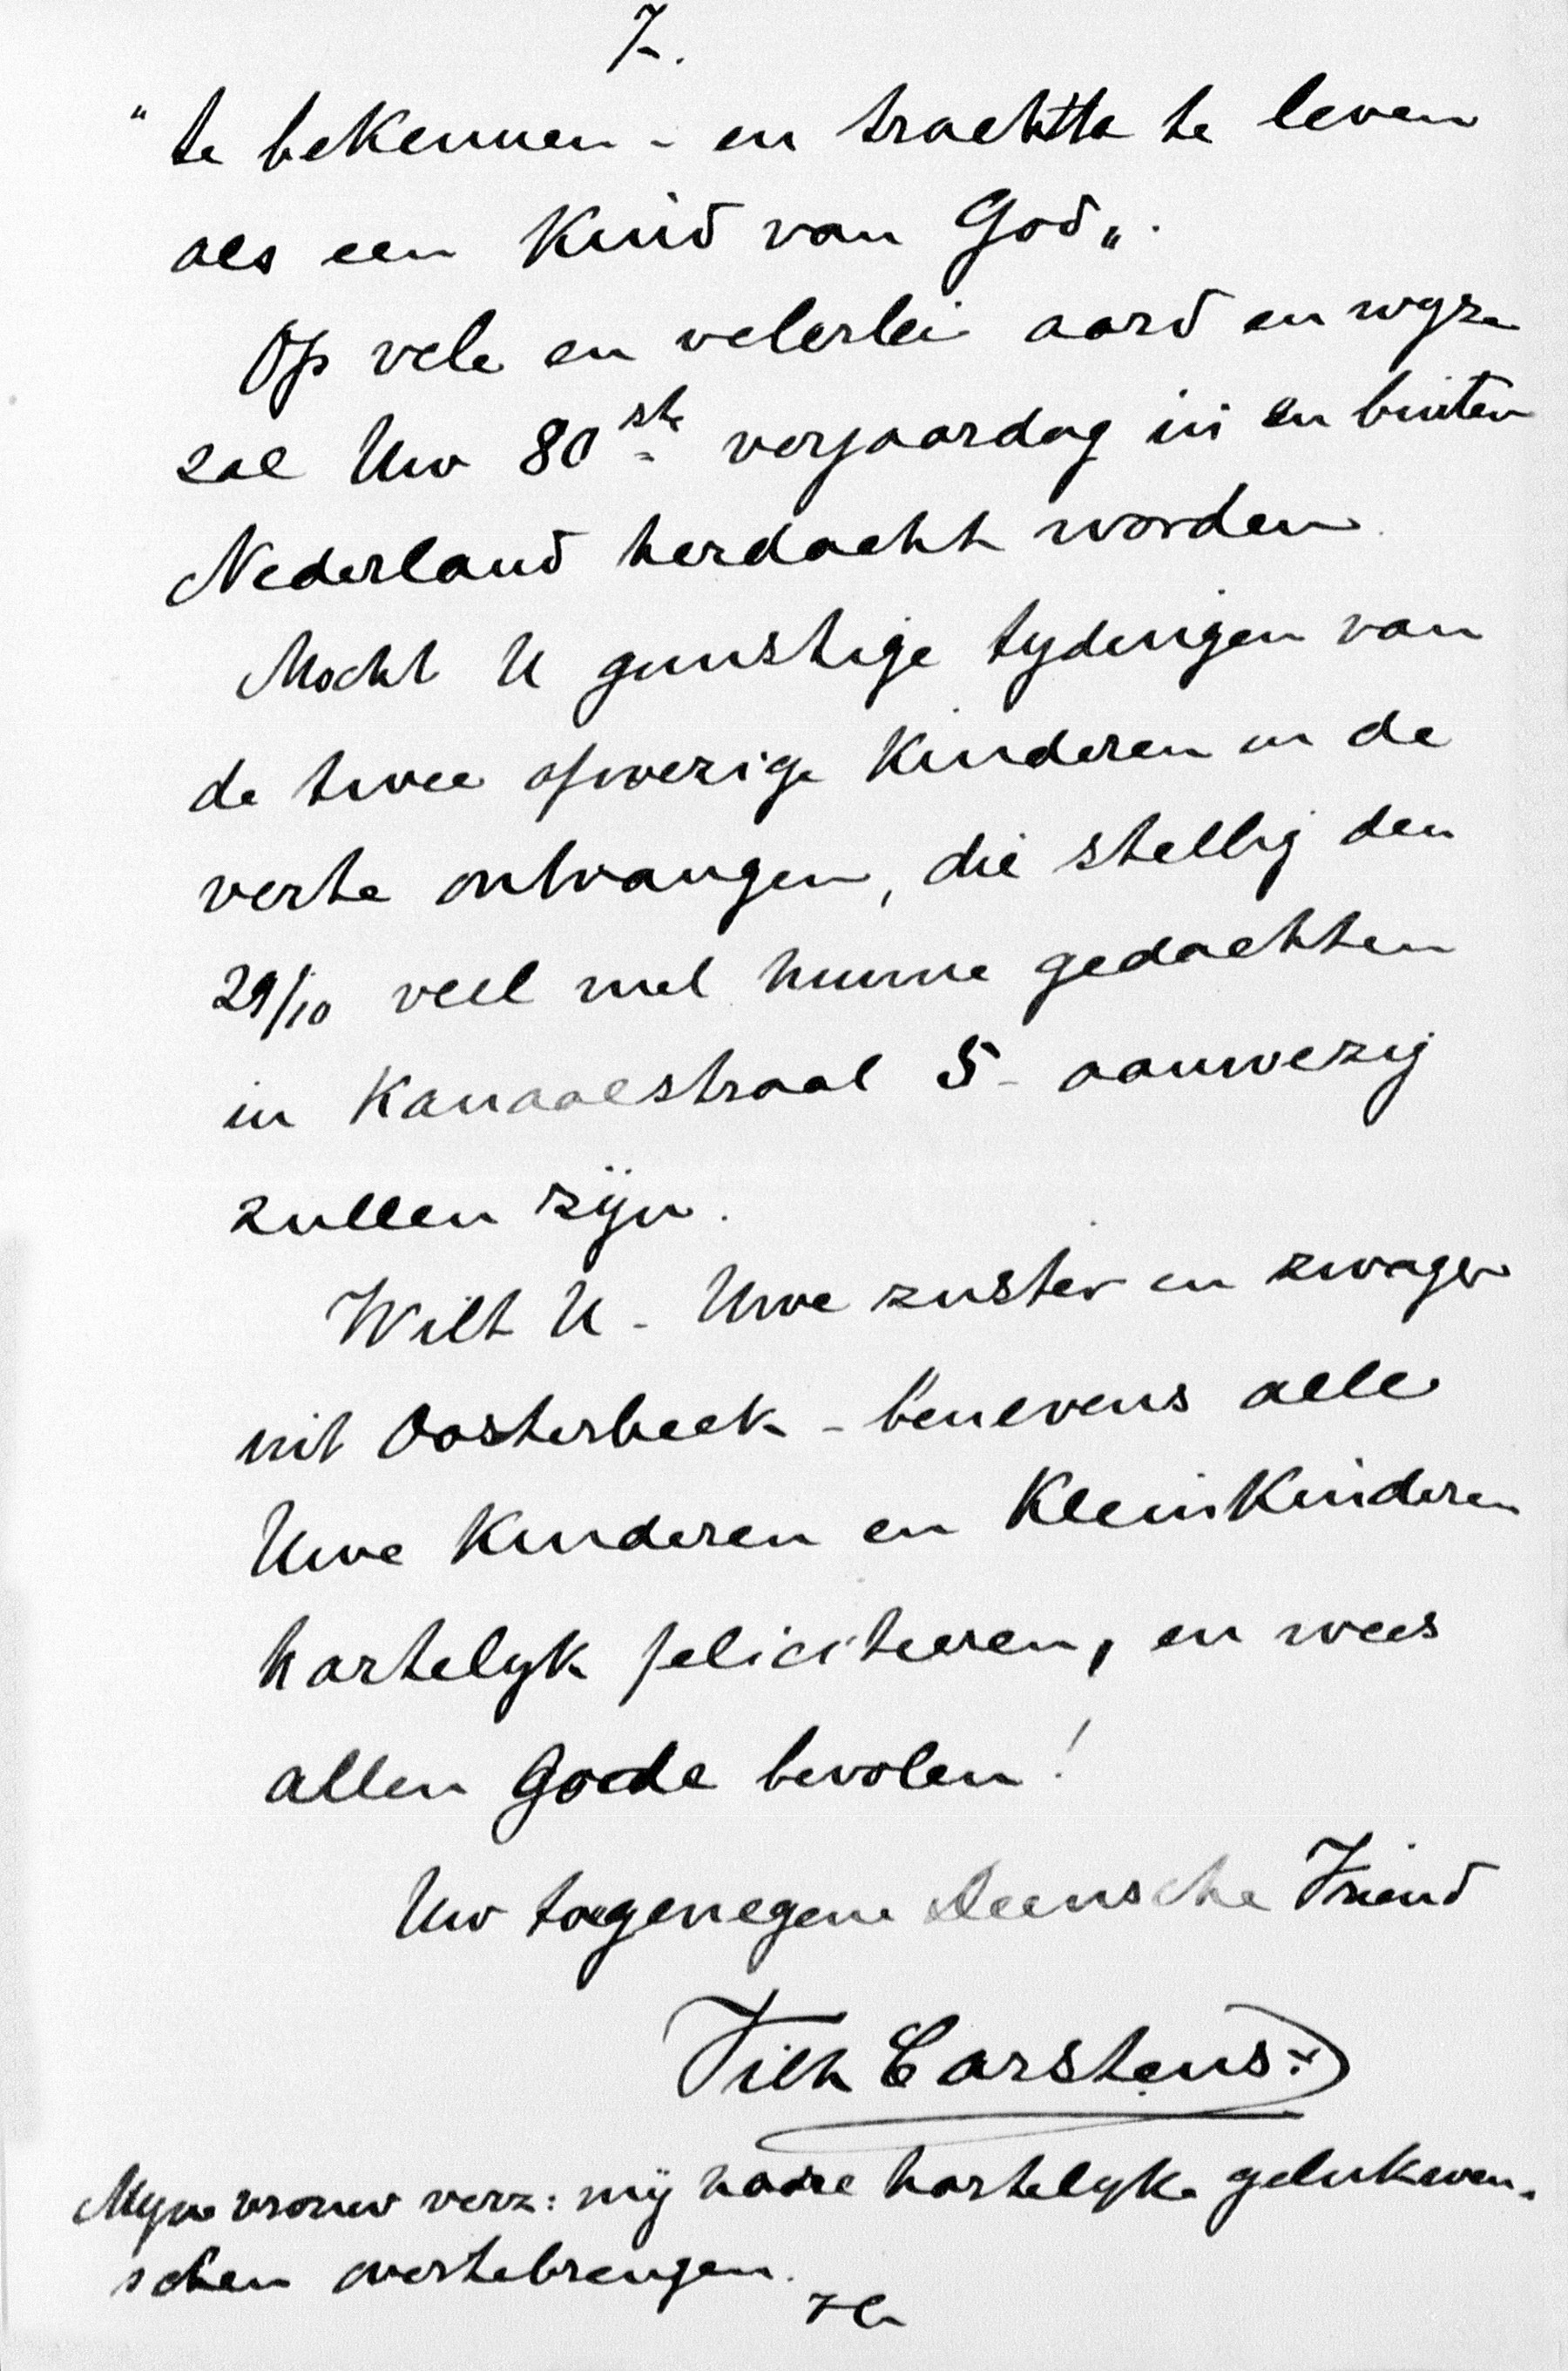 7.
" te bekennen - en trachtte te leven
als een Kind van God„.
Op vele en velerlei aard en wyze
zal Uw 80ste verjaardag in en buiten
Nederland herdacht worden.
Mocht U gunstige tydingen van
de twee afwezige Kinderen in de
verte ontvangen, die stellig den
29/10 veel met hunne gedachten
in Kanaalstraat 5 - aanwezig
zullen zijn.
Wilt U - Uwe zuster en zwager
uit Oosterbeek - benevens alle
Uwe Kinderen en KleinKinderen
hartelyk feliciteeren, en wees
allen Gode bevolen!
Uw toegenegene Deensche Vriend
Vilh Carstens
Myne vrouw verz: mij hare hartelyke gelukwen-
schen overtebrengen.